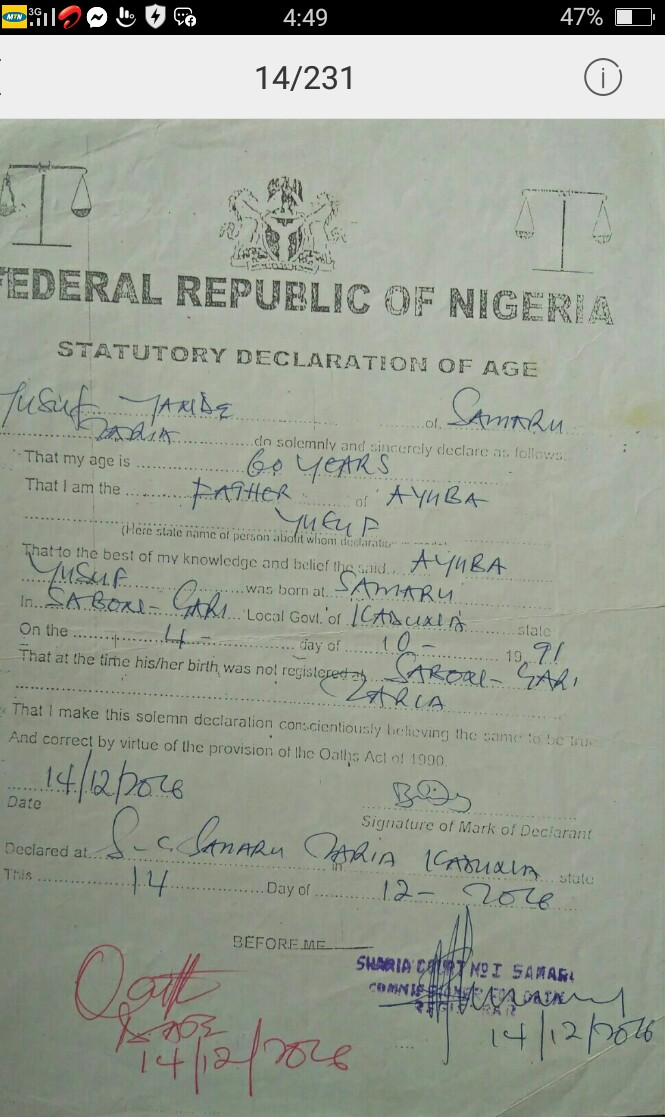 MTN 3G 4:49 47%
14/231
FEDERAL REPUBLIC OF NIGERIA
STATUTORY DECLARATION OF AGE
YUSUF YAKUBU of SAMARU
ZARIA do solemnly and sincerely declare as follows:
That my age is 60 YEARS
That I am the FATHER of AYUBA
YUSUF
(Here state name of person about whom declaration
That to the best of my knowledge and belief the said AYUBA
YUSUF was born at SAMARU
In SABON-GARI Local Govt. of KADUNA state
On the 4- day of 10- 1991
That at the time his/her birth was not registered at SABON-GARI
ZARIA
That I make this solemn declaration conscientiously believing the same to be true
And correct by virtue of the provision of the Oaths Act of 1990.
14/12/2016
Date
Signature of Mark of Declarant
Declared at S-C SAMARU ZARIA in KADUNA state
This 14 Day of 12- 2016
BEFORE ME
SHARIA COURT NO I SAMARU
COMMISSIONER FOR OATH
REGISTRAR
Oath
14/12/2016
14/12/2016